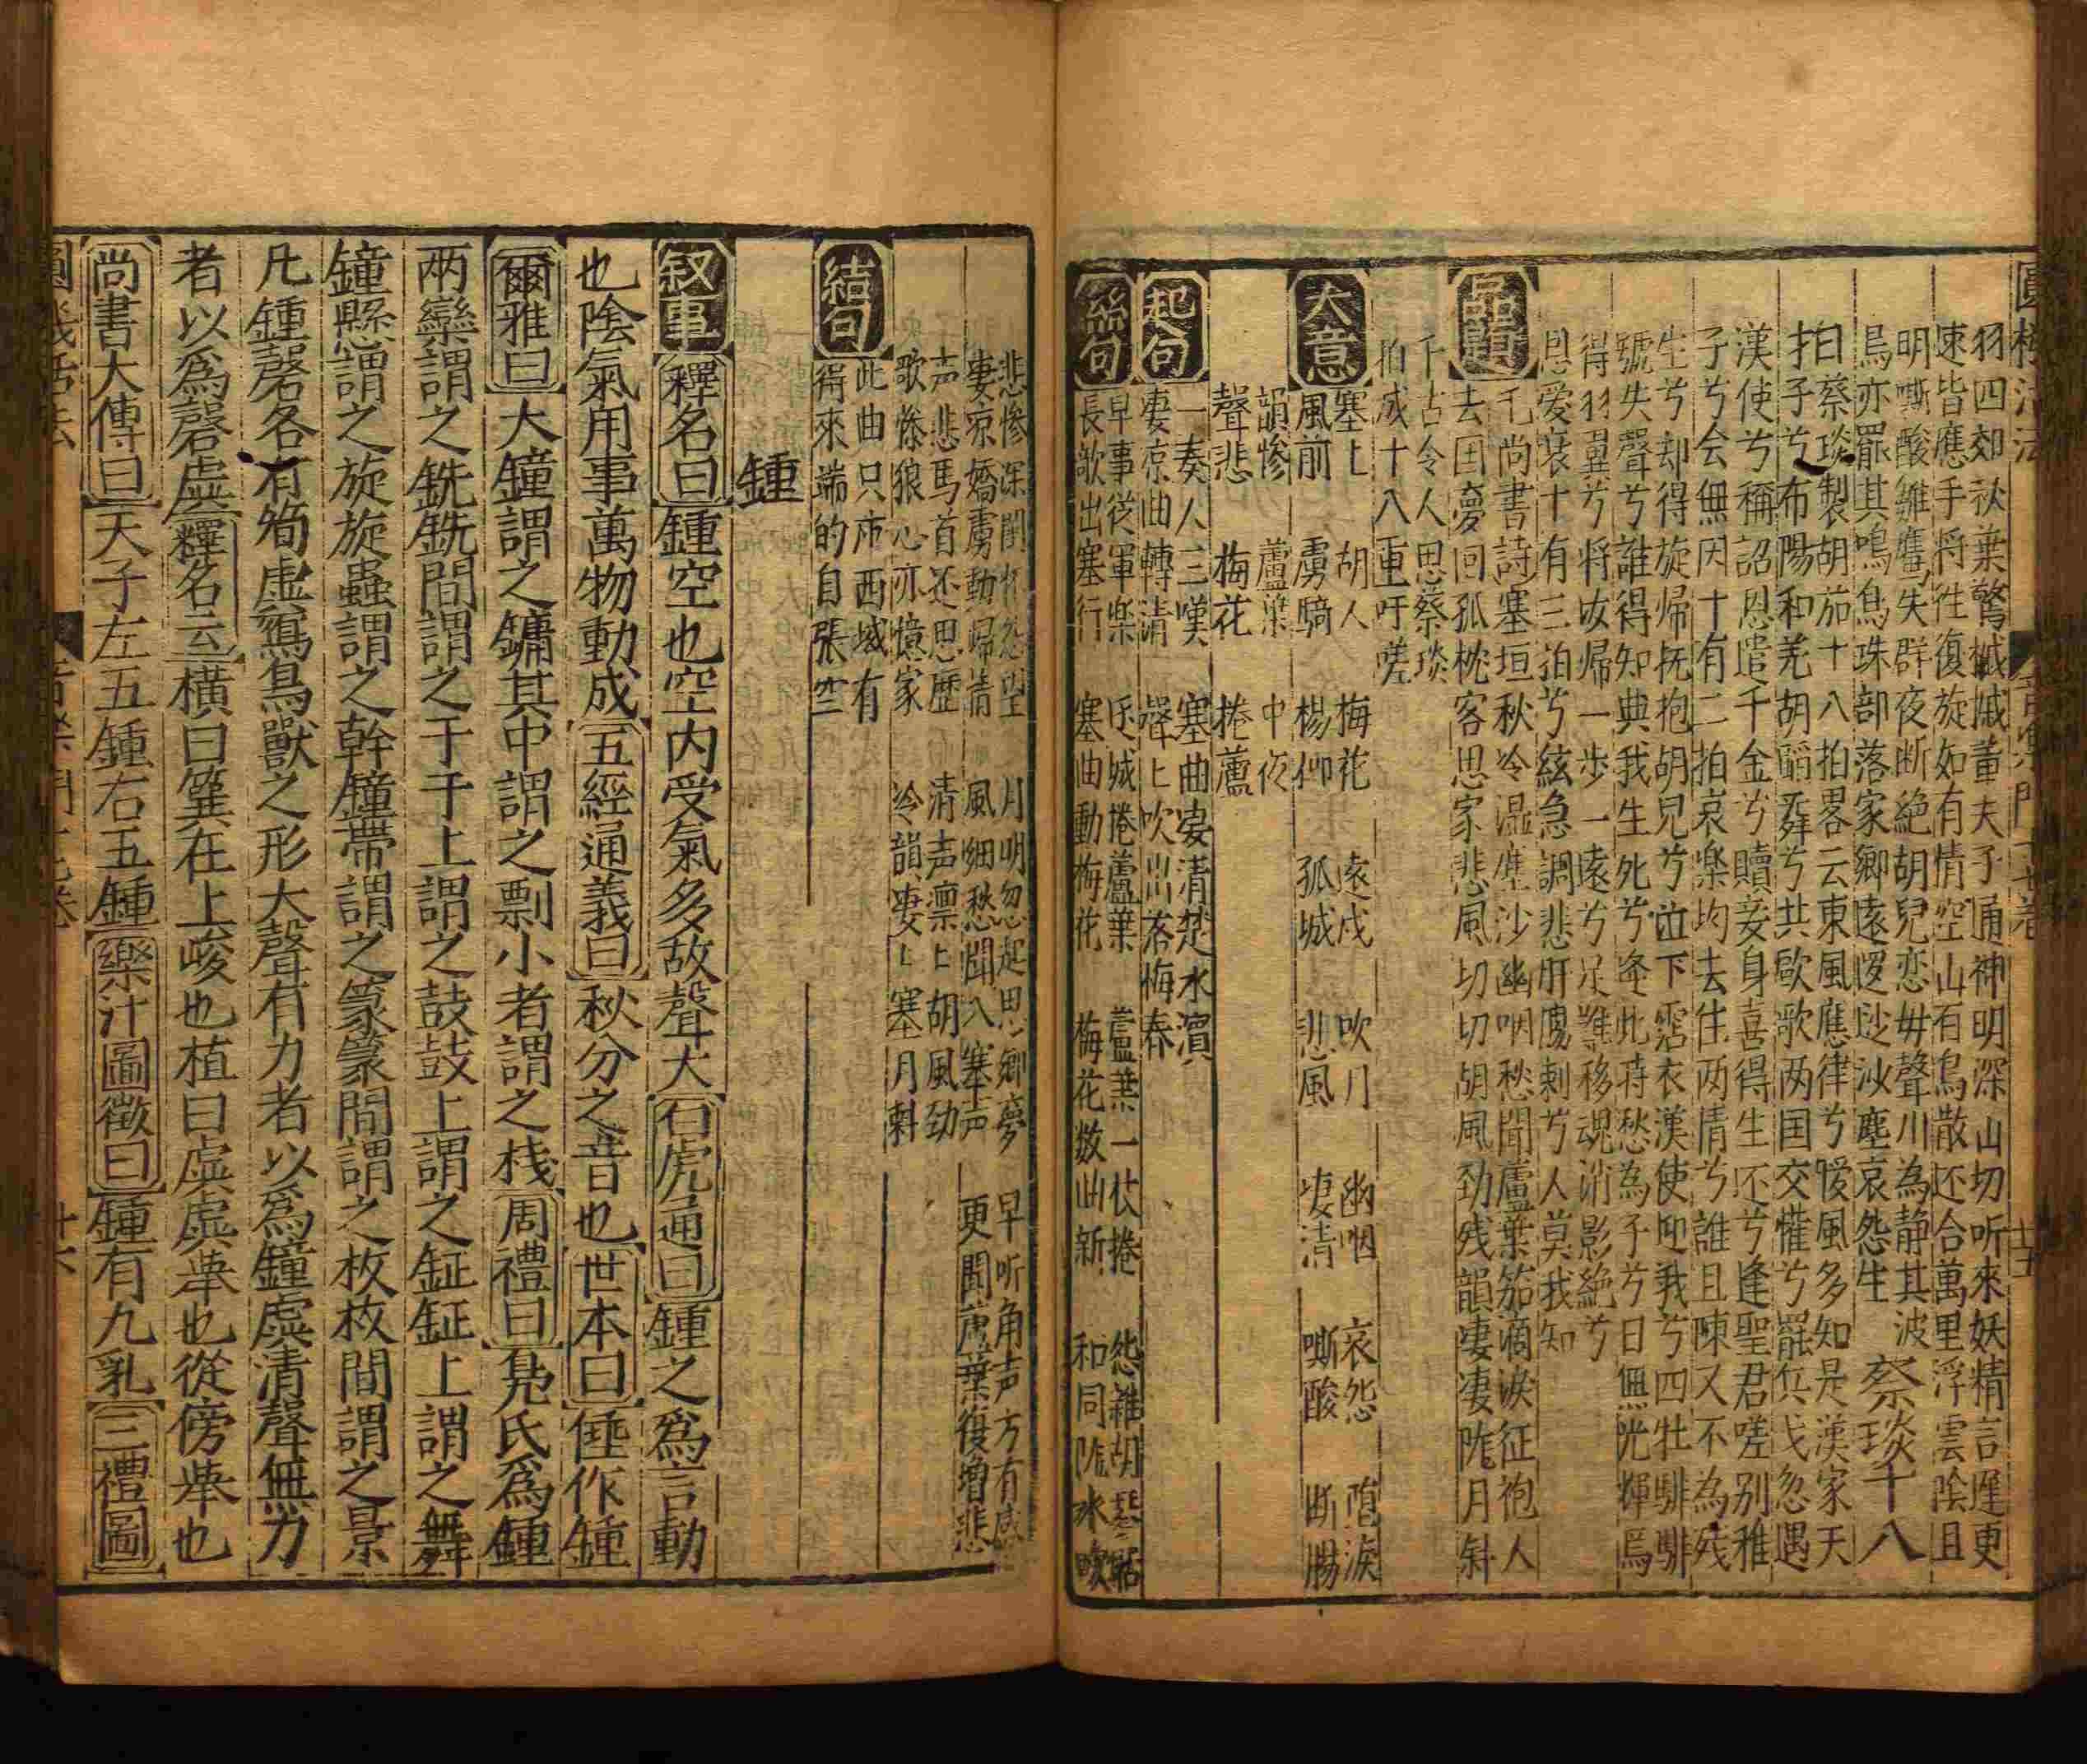 羽四郊秋葉驚摵摵董夫子通神明深山切听來妖精言遲更
速皆應手將徃復旋如有情空山百鳥散还合萬里浮雲陰且
明嘶酸雛鴈失群夜断絶胡兒恋母聲川為静其波
鳥亦罷其鳴烏珠部落家鄉遠邏娑沙塵哀怨生
蔡琰十八
拍蔡琰製胡笳十八拍畧云東風應律兮暖風多知是漢家天
子兮布陽和羌胡蹈舞兮共歐歌两国交懽兮罷兵戈忽遇
漢使兮稱詔恩遣千金兮贖妾身喜得生还兮逢聖君嗟别稚
子兮会無因十有二拍哀樂均去住两情兮誰且陳又不為残
生兮却得旋帰抚抱胡兒兮泣下霑衣漢使迎我兮四牡騑騑
號失聲兮誰得知與我生死兮逢此時愁為子兮日無光輝焉
得羽翼兮將汝帰一步一遠兮足難移魂消影絶兮
恩爱衰十有三拍兮絃急調悲肝膓刺兮人莫我知
品題
毛尚書詩塞垣秋冷湿塵沙幽咽愁聞蘆葉笳滴淚征袍人
去国夢回孤枕客思家悲風切切胡風勁残韻凄凄隴月斜
千古令人思蔡琰
拍成十八重吁嗟
大意
塞上 胡人 梅花 遠戍 吹月 幽咽 哀怨 墮淚
風前 虜騎 楊柳 孤城 悲風 凄清 嘶酸 断腸
韻慘 蘆葉 中夜
聲悲 梅花 捲蘆
起句
一奏人三嘆 塞曲凄清楚水濱
凄凉曲轉清 聲上吹出落梅春
聯句
早事從軍楽 戍城捲蘆葉 蘆葉一伏捲 怨雜胡琴
長歌出塞行 塞曲動梅花 梅花数曲新 和同隴水
悲慘深閨怀怨望 月明忽起思鄉夢 早听角声方有感
凄凉嬌虜動帰情 風細愁聞入塞声 更聞蘆葉復增悲
声悲馬首还思歷 清声凛上胡風劲
歌慘狼心亦憶家 冷韻凄上塞月斜
結句
此曲只应西域有
得來端的自張空
鍾
叙事 釋名曰鍾空也空内受氣多故聲大白虎通曰鍾之爲言動
也陰氣用事萬物動成五經通義曰秋分之音也世本曰倕作鍾
爾雅曰大鐘謂之鏞其中謂之剽小者謂之棧周禮曰鳧氏爲鍾
兩欒謂之銑銑間謂之于于上謂之鼓鼓上謂之鉦鉦上謂之舞
鐘懸謂之旋旋蟲謂之幹鐘帶謂之篆篆間謂之枚枚間謂之景
凡鍾磬各有筍虚寫鳥獸之形大聲有力者以爲鐘虡清聲無力
者以爲磬虡釋名云横曰簨在上峻也植曰虡虡舉也從傍舉也
尚書大傳曰天子左五鍾右五鍾樂汁圖徵曰鍾有九乳三禮圖